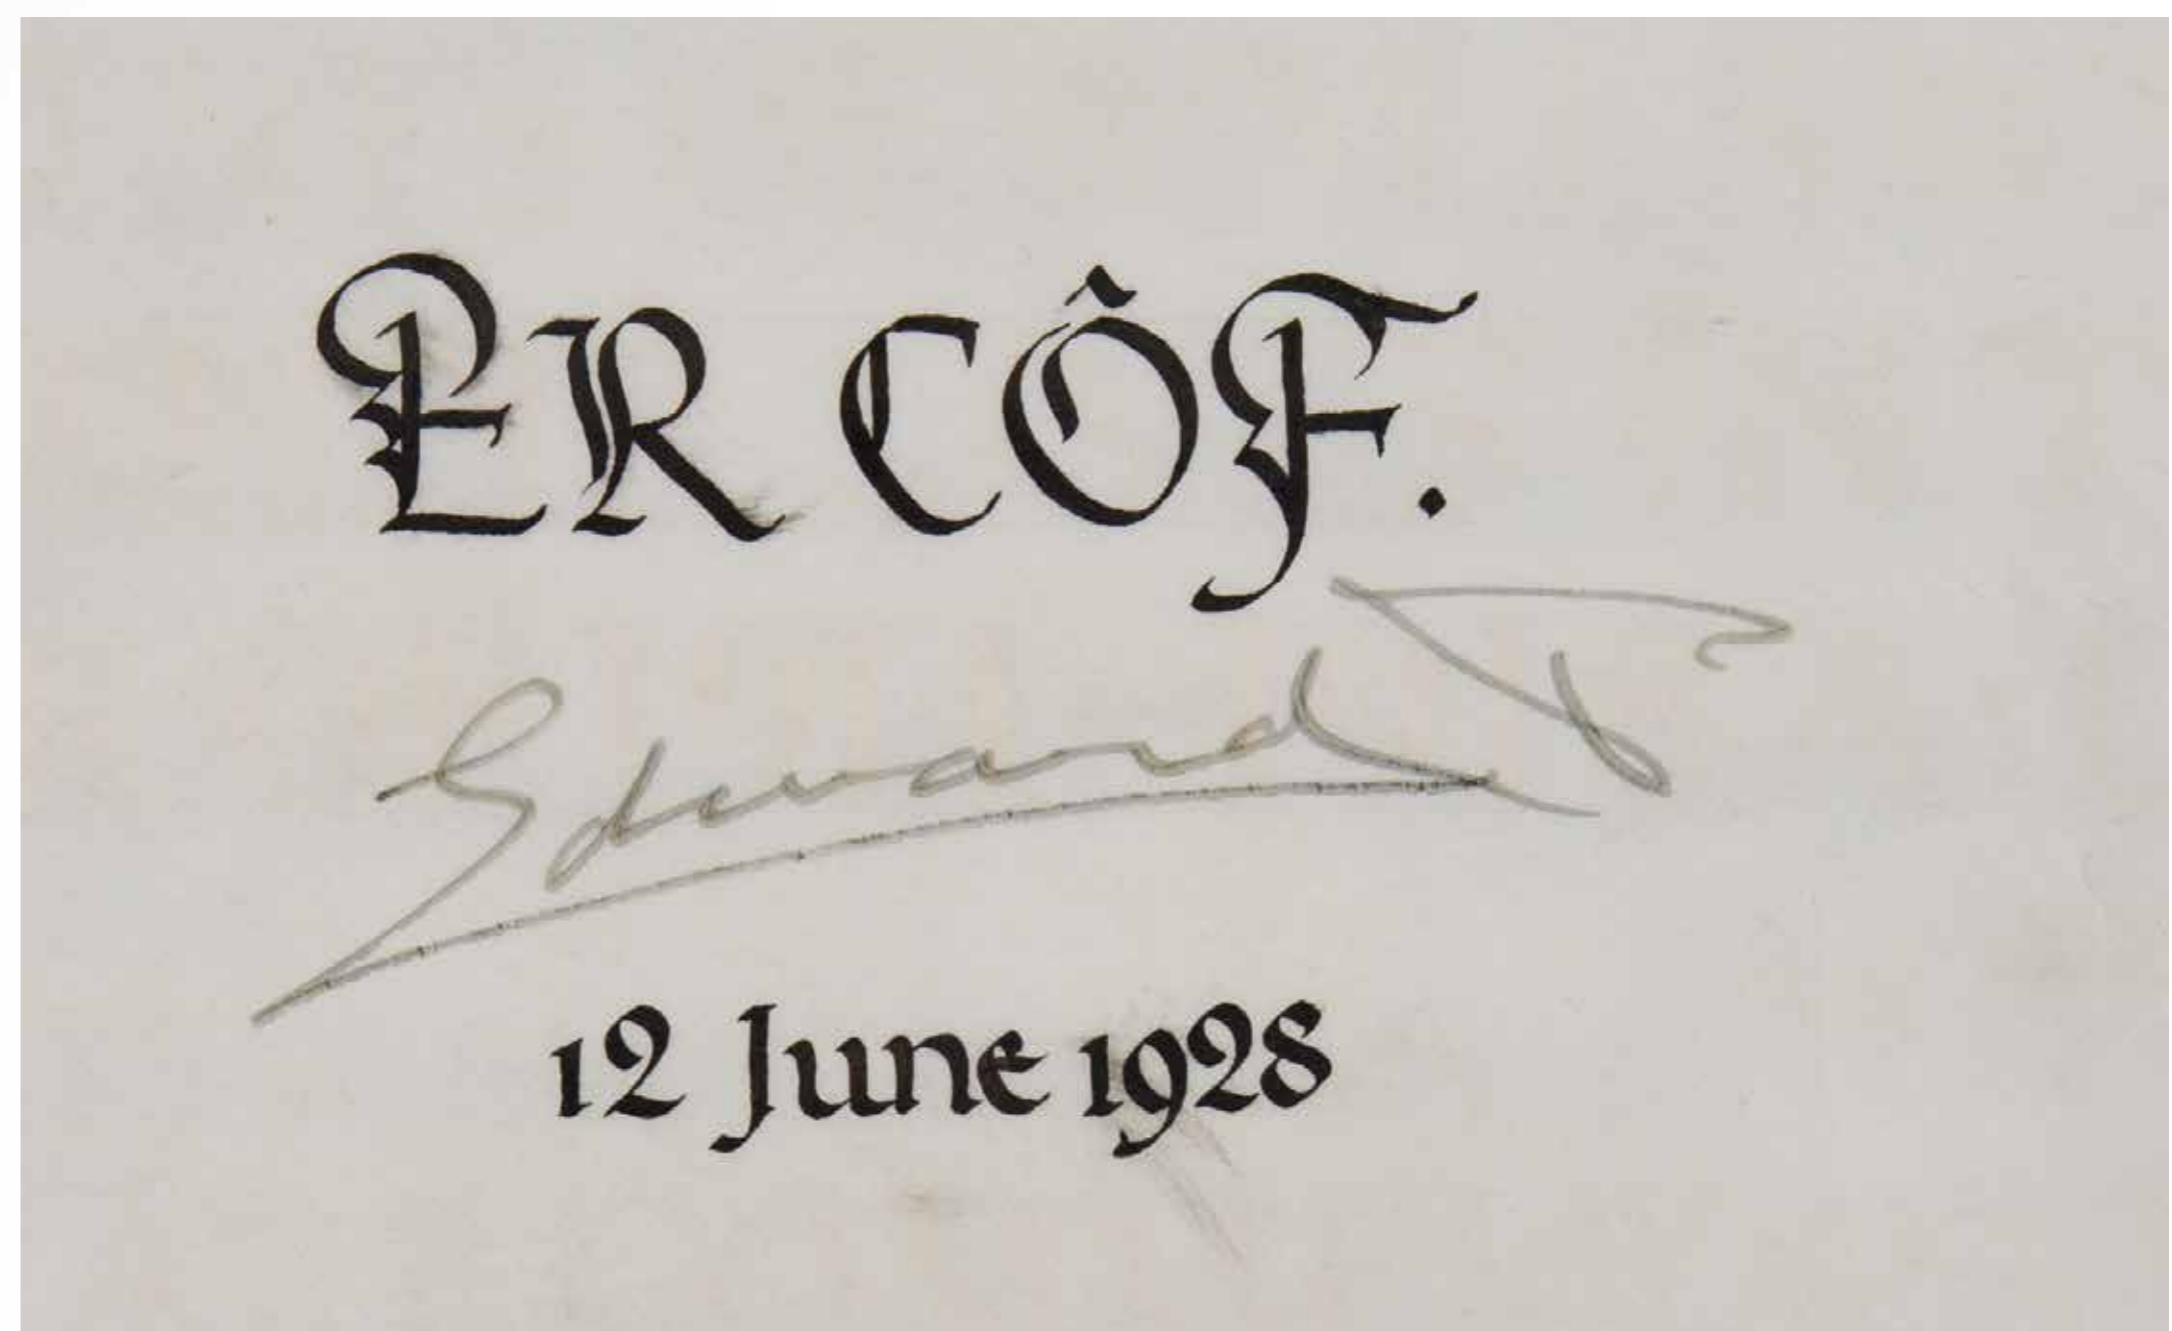 ER CÔF.
Edward P
12 June 1928